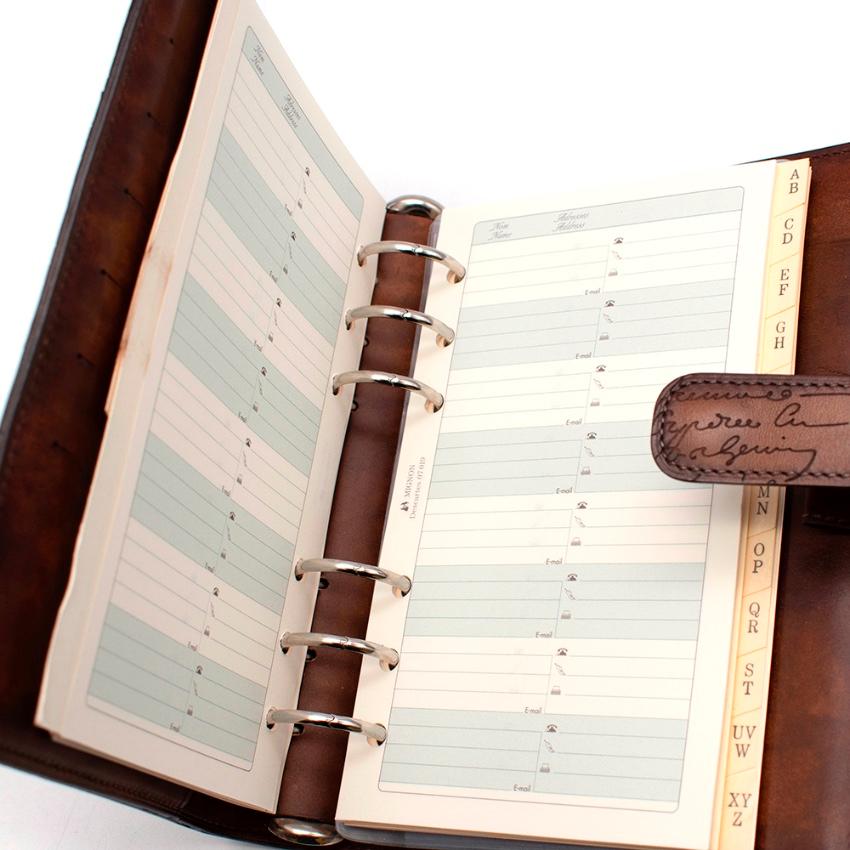 Nom
Name
Adresses
Address
E-mail
E-mail
E-mail
E-mail
E-mail
E-mail
E-mail
E-mail
Nom
Name
Adresses
Address
E-mail
E-mail
E-mail
E-mail
E-mail
E-mail
E-mail
E-mail
MIGNON
Descartes 07 019
AB
CD
EF
GH
MN
OP
QR
ST
UV
W
XY
Z